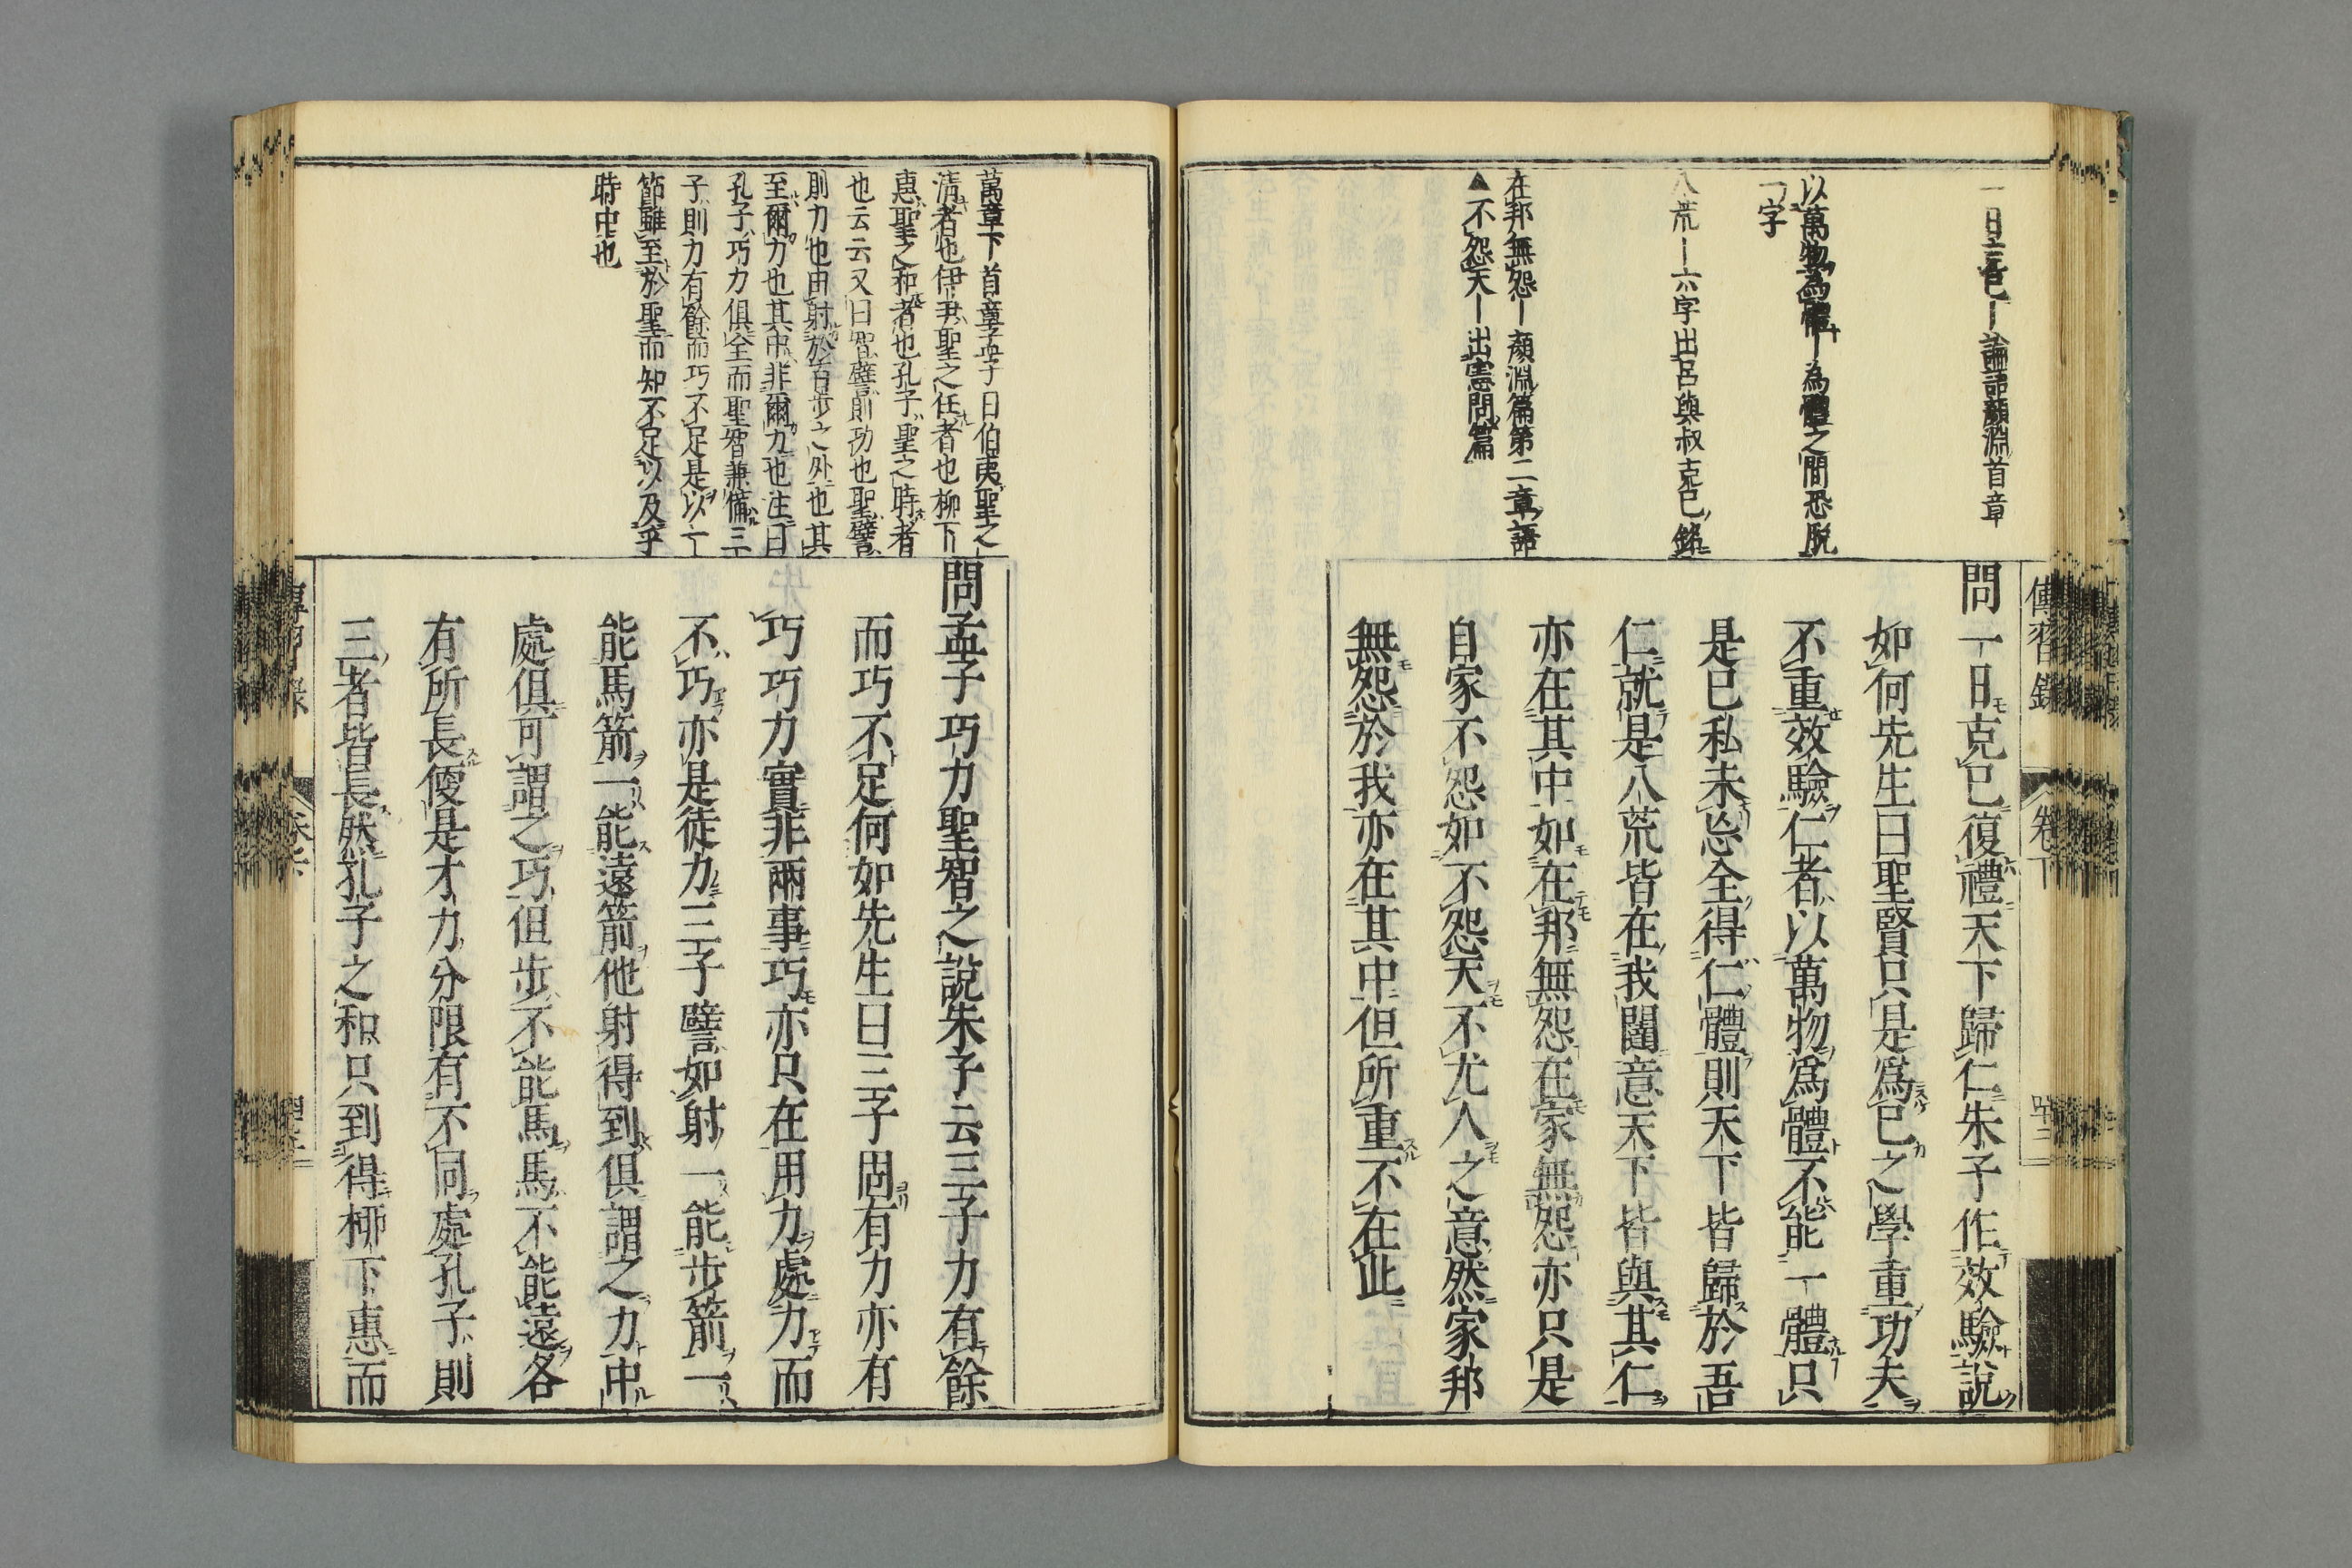 傳習錄 卷下 四十二
一日克己ー論語顏淵首章
以萬物為體ー為體之間恐脫
一字
八荒ー六字出呂與叔克己銘
在邦無怨ー顏淵篇第二章語
▲不怨天ー出憲問篇
問一日克己復禮天下歸仁朱子作效驗說
如何先生曰聖賢只是爲己之學重功夫
不重效驗仁者以萬物爲體不能一體只
是己私未忘全得仁體則天下皆歸於吾
仁就是八荒皆在我闥意天下皆與其仁
亦在其中如在邦無怨在家無怨亦只是
自家不怨如不怨天不尤人之意然家邦
無怨於我亦在其中但所重不在此
萬章下首章孟子曰伯夷聖之
清者也伊尹聖之任者也柳下
惠聖之和者也孔子聖之時者
也云云又曰智譬則功也聖譬
則力也由射於百步之外也其
至爾力也其中非爾力也注曰
孔子巧力俱全而聖智兼備三
子則力有餘而巧不足是以一
節雖至於聖而知不足以及乎
時中也
問孟子巧力聖智之說朱子云三子力有餘
而巧不足何如先生曰三子固有力亦有
巧巧力實非兩事巧亦只在用力處力而
不巧亦是徒力三子譬如射一能步箭一
能馬箭一能遠箭他射得到俱謂之力中
處俱可謂之巧但步不能馬馬不能遠各
有所長便是才力分限有不同處孔子則
三者皆長然孔子之和只到得柳下惠而